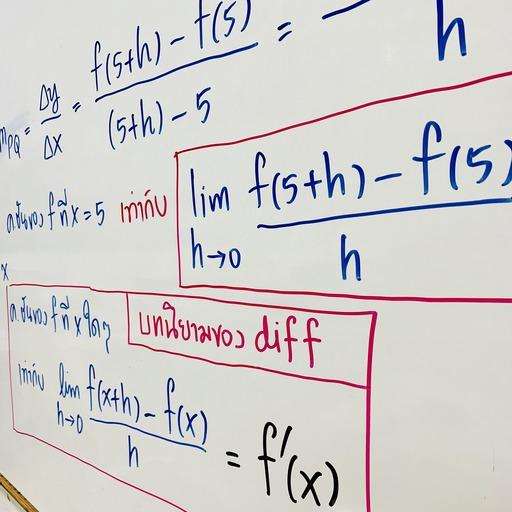 m_PQ = Δy/Δx = (f(5+h) − f(5))/((5+h) − 5) = /h
ค.ชันของ f ที่ x = 5 เท่ากับ lim h→0 (f(5+h) − f(5))/h
x
ค.ชันของ f ที่ x ใดๆ บทนิยามของ diff
เท่ากับ lim h→0 (f(x+h) − f(x))/h = f′(x)